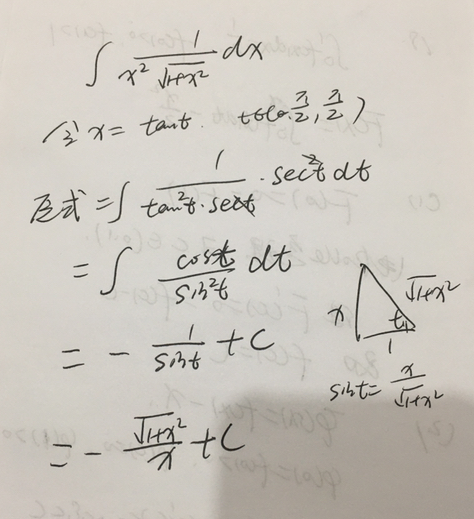 ∫ 1/(x²√(1+x²)) dx
令 x = tant. t∈(-π/2, π/2)
原式 = ∫ 1/(tan²t·sect) · sec²t dt
= ∫ cost/sin²t dt
= - 1/sint + C
= - √(1+x²)/x + C
x √(1+x²) t 1
sint = x/√(1+x²)